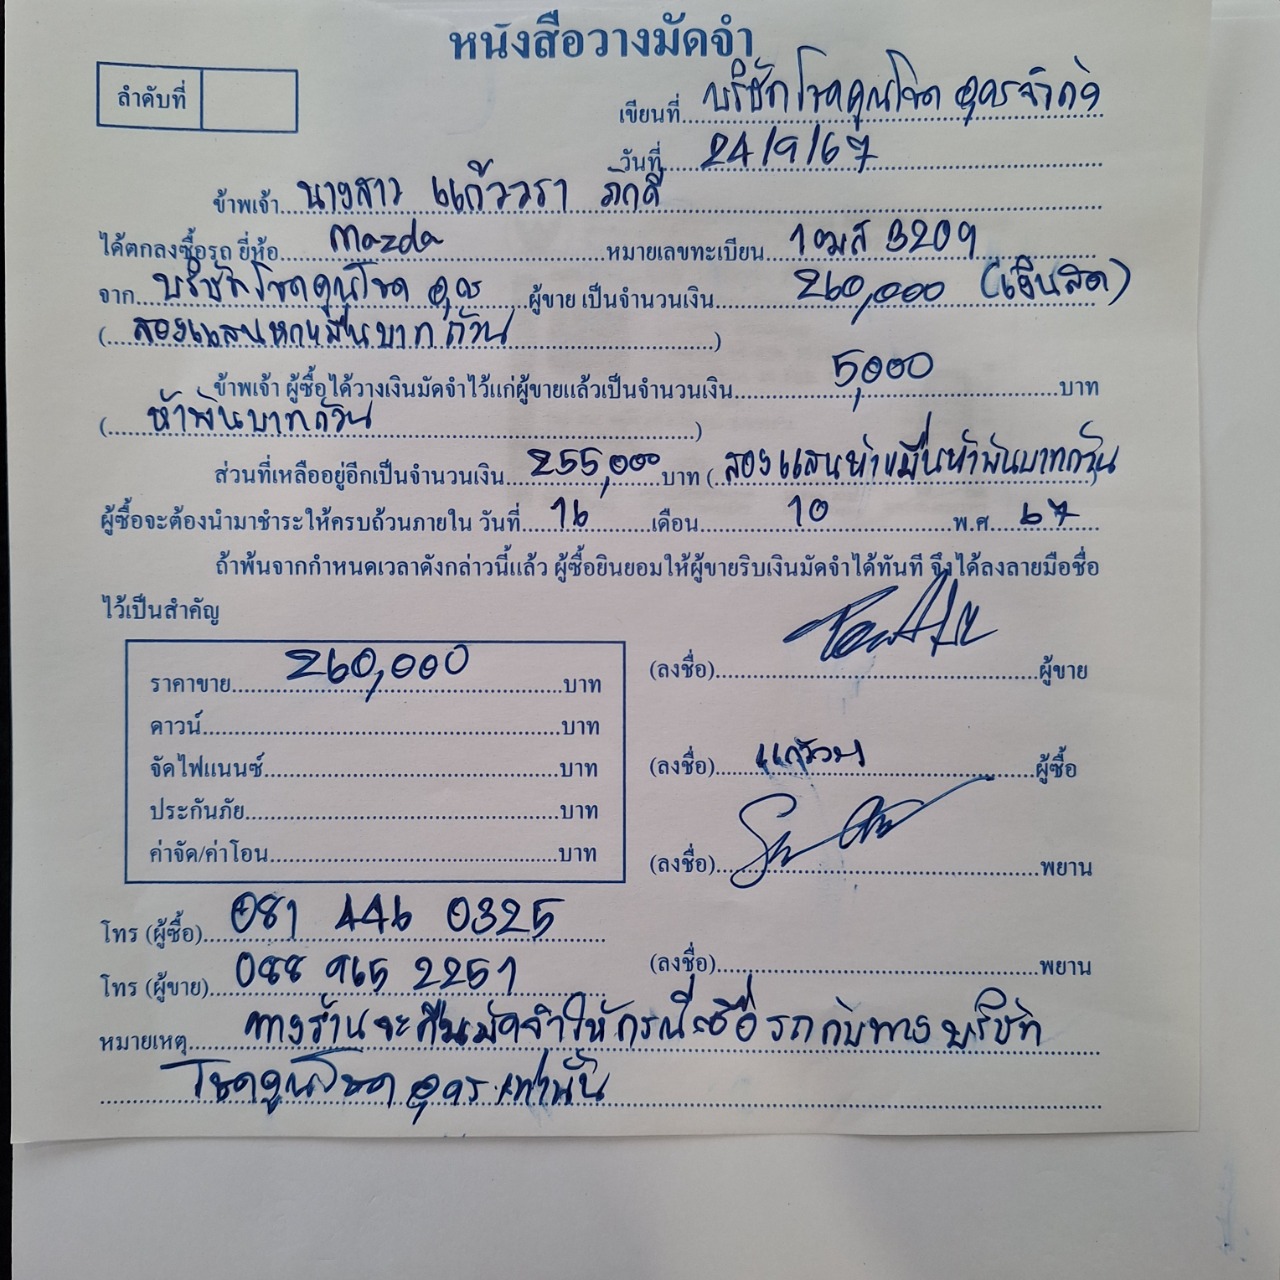 หนังสือวางมัดจำ
ลำดับที่
เขียนที่ บริษัทโชคคูณโชค อุดรจำกัด
วันที่ 24/9/67
ข้าพเจ้า นางสาว แก้ววรา ภักดี
ได้ตกลงซื้อรถ ยี่ห้อ mazda หมายเลขทะเบียน 1ฒส 3209
จาก บริษัทโชคคูณโชค อุดร ผู้ขาย เป็นจำนวนเงิน 260,000 (เงินสด)
(สองแสนหกหมื่นบาทถ้วน)
ข้าพเจ้า ผู้ซื้อได้วางเงินมัดจำไว้แก่ผู้ขายแล้วเป็นจำนวนเงิน 5,000 บาท
(ห้าพันบาทถ้วน)
ส่วนที่เหลืออยู่อีกเป็นจำนวนเงิน 255,000 บาท (สองแสนห้าหมื่นห้าพันบาทถ้วน)
ผู้ซื้อจะต้องนำมาชำระให้ครบถ้วนภายใน วันที่ 16 เดือน 10 พ.ศ 67
ถ้าพ้นจากกำหนดเวลาดังกล่าวนี้แล้ว ผู้ซื้อยินยอมให้ผู้ขายริบเงินมัดจำได้ทันที จึงได้ลงลายมือชื่อ
ไว้เป็นสำคัญ
ราคาขาย 260,000 บาท
ดาวน์ บาท
จัดไฟแนนซ์ บาท
ประกันภัย บาท
ค่าจัด/ค่าโอน บาท
(ลงชื่อ) ผู้ขาย
(ลงชื่อ) แก้ววรา ผู้ซื้อ
(ลงชื่อ) พยาน
(ลงชื่อ) พยาน
โทร (ผู้ซื้อ) 081 446 0325
โทร (ผู้ขาย) 088 965 2251
หมายเหตุ ทางร้านจะคืนมัดจำให้กรณีซื้อรถกับทางบริษัท
โชคคูณโชค อุดร เท่านั้น